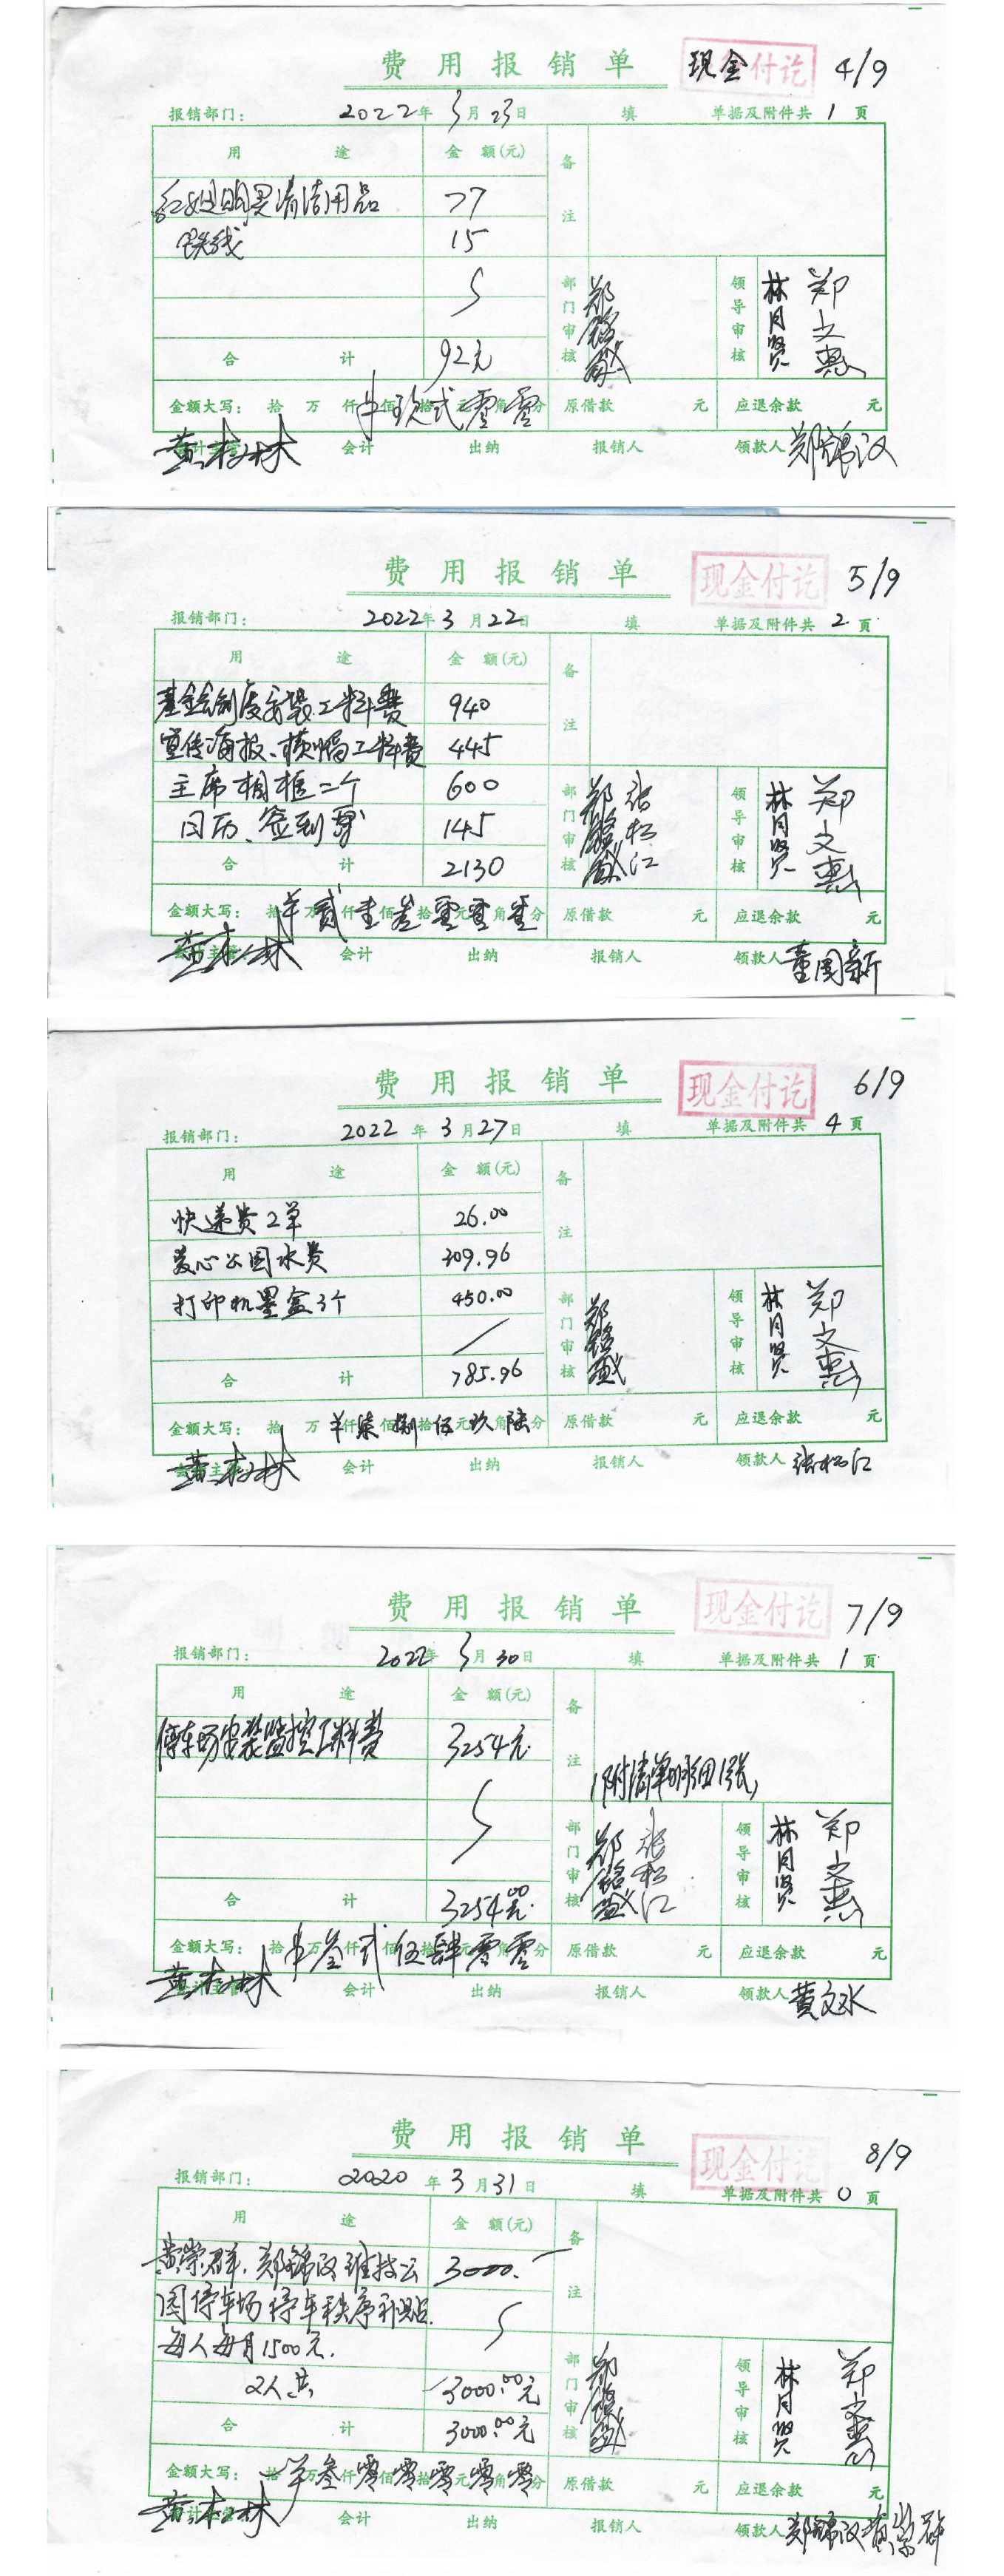 费用报销单 现金付讫 4/9
报销部门： 2022年3月23日 填 单据及附件共1页
用途 金额(元) 备注
清洁用品 77
铁线 15
合计 92元
部门审核 郑铭盛 领导审核 林月贤 郑文惠
金额大写： 拾万仟佰拾元角分 玖贰零零 原借款 元 应退余款 元
黄木林 会计 出纳 报销人 领款人 郑锦汉
费用报销单 现金付讫 5/9
报销部门： 2022年3月22日 填 单据及附件共2页
用途 金额(元) 备注
基金会制度安装工料费 940
宣传海报、横幅工料费 445
主席相框二个 600
日历、签到簿 145
合计 2130
部门审核 郑铭盛 张松江 领导审核 林月贤 郑文惠
金额大写： 拾万仟佰拾元角分 贰壹叁零零零 原借款 元 应退余款 元
黄木林 会计 出纳 报销人 领款人 董国新
费用报销单 现金付讫 6/9
报销部门： 2022年3月27日 填 单据及附件共4页
用途 金额(元) 备注
快递费2单 26.00
爱心公园水费 309.96
打印机墨盒3个 450.00
合计 785.96
部门审核 郑铭盛 领导审核 林月贤 郑文惠
金额大写： 拾万仟佰拾元角分 柒捌伍玖陆 原借款 元 应退余款 元
黄木林 会计主管 会计 出纳 报销人 领款人 张松江
费用报销单 现金付讫 7/9
报销部门： 2022年3月30日 填 单据及附件共1页
用途 金额(元) 备注
停车场安装监控工料费 3254元
(附清单明细1张)
合计 3254.00元
部门审核 郑铭盛 张松江 领导审核 林月贤 郑文惠
金额大写： 拾万仟佰拾元角分 叁贰伍肆零零 原借款 元 应退余款 元
黄木林 会计 出纳 报销人 领款人 黄文水
费用报销单 现金付讫 8/9
报销部门： 2020年3月31日 填 单据及附件共0页
用途 金额(元) 备注
黄荣群、郑锦汉维持公 3000.
园停车场停车秩序补贴.
每人每月1500元.
2人共 3000.00元
合计 3000.00元
部门审核 郑铭盛 领导审核 林月贤 郑文惠
金额大写： 拾万仟佰拾元角分 叁零零零零零 原借款 元 应退余款 元
黄木林 会计 出纳 报销人 领款人 郑锦汉 黄荣群